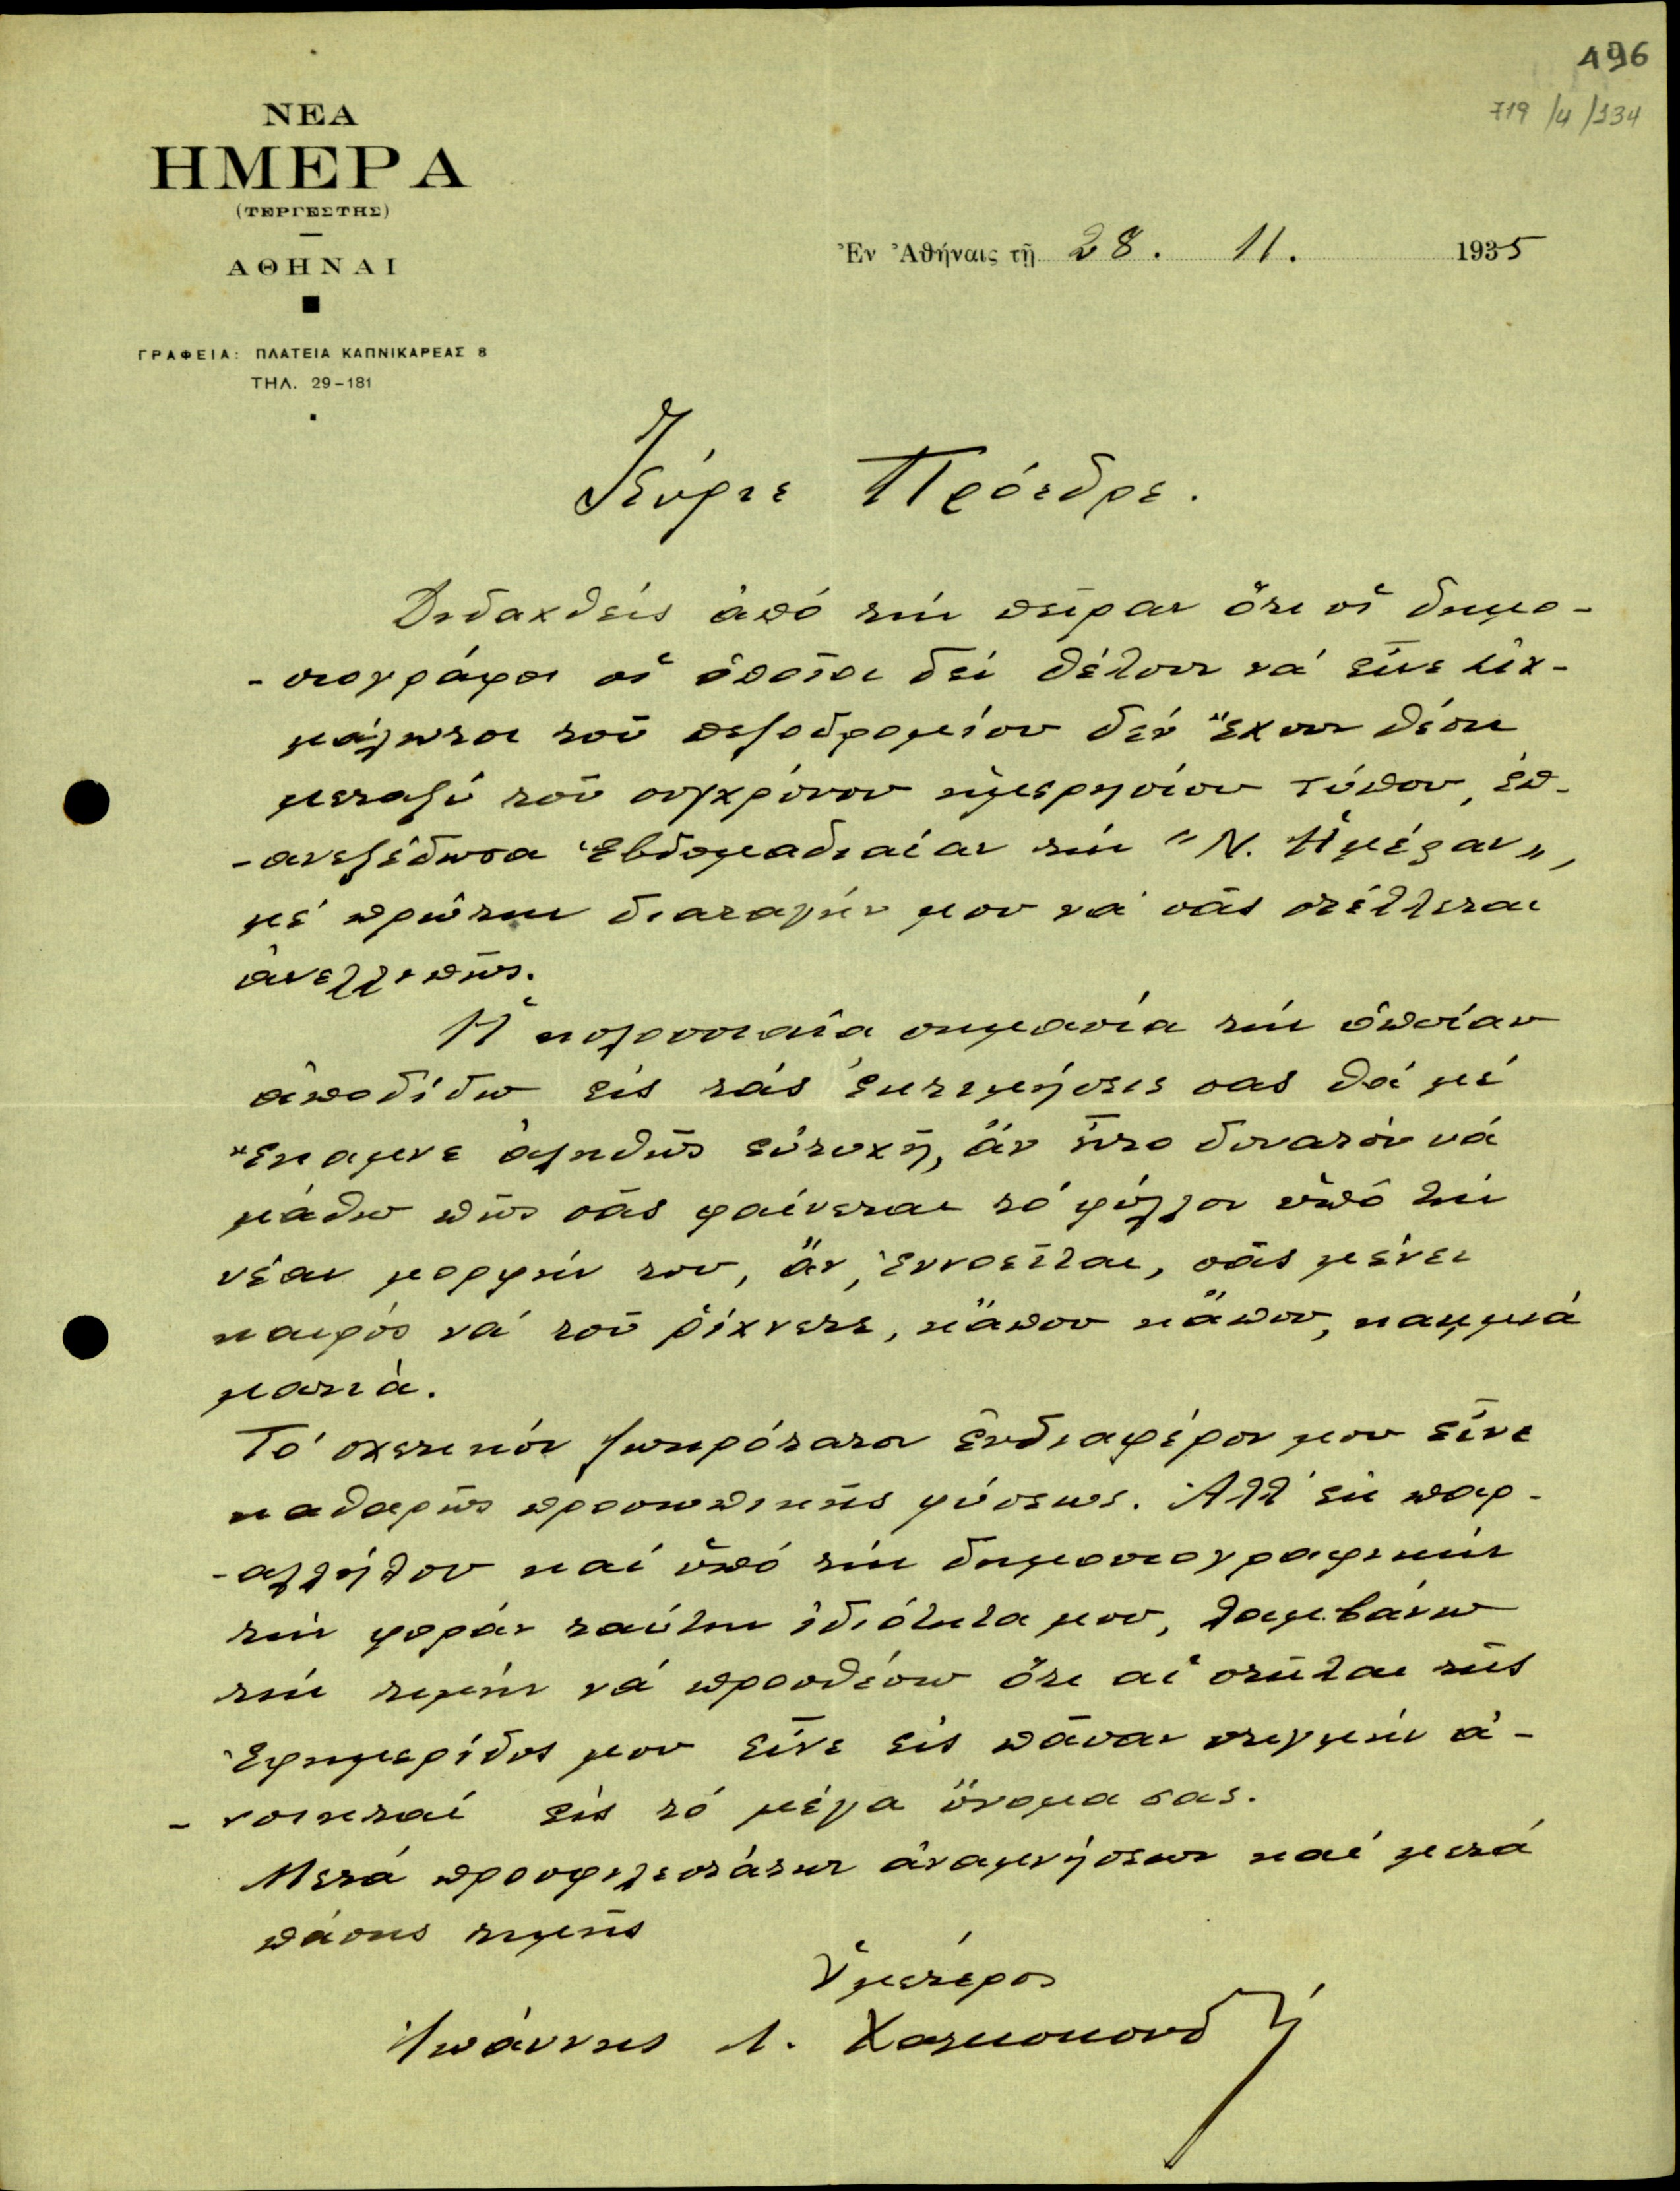 496
719/4/134
ΝΕΑ
ΗΜΕΡΑ
(ΤΕΡΓΕΣΤΗΣ)
ΑΘΗΝΑΙ
ΓΡΑΦΕΙΑ: ΠΛΑΤΕΙΑ ΚΑΠΝΙΚΑΡΕΑΣ 8
ΤΗΛ. 29-181
Ἐν Ἀθήναις τῇ 28. 11. 1935
Κύριε Πρόεδρε.
Διδαχθείς ἀπό τήν πεῖραν ὅτι οἱ δημο-
-σιογράφοι οἱ ὁποῖοι δέν θέλουν νά εἶνε αἰχ-
μάλωτοι τοῦ πεζοδρομίου δέν ἔχουν θέσιν
μεταξύ τοῦ συγχρόνου ἡμερησίου τύπου, ἐπ-
-ανεξέδωσα ἑβδομαδιαίαν τήν "Ν. Ἡμέραν",
μέ πρώτην διαταγήν μου νά σᾶς στέλλεται
ἀνελλιπῶς.
Ἡ κολοσσιαία σημασία τήν ὁποίαν
ἀποδίδω εἰς τάς ἐκτιμήσεις σας θά μέ
ἔκαμνε ἀληθῶς εὐτυχῆ, ἄν ἦτο δυνατόν νά
μάθω πῶς σᾶς φαίνεται τό φύλλον ὑπό τήν
νέαν μορφήν του, ἄν, ἐννοεῖται, σᾶς μένει
καιρός νά τοῦ ρίχνετε, κἄπου κἄπου, καμμιά
ματιά.
Τό σχετικόν ζωηρότατον ἐνδιαφέρον μου εἶνε
καθαρῶς προσωπικῆς φύσεως. Ἀλλ' ἐκ παρ-
-αλλήλου καί ὑπό τήν δημοσιογραφικήν
τήν φοράν ταύτην ἰδιότητα μου, λαμβάνω
τήν τιμήν νά προσθέσω ὅτι αἱ στῆλαι τῆς
ἐφημερίδος μου εἶνε εἰς πᾶσαν στιγμήν ἀ-
-νοικταί εἰς τό μέγα ὄνομα σας.
Μετά προσφιλεστάτων ἀναμνήσεων καί μετά
πάσης τιμῆς
Ὑμέτερος
Ἰωάννης Λ. Χαλκοκονδ